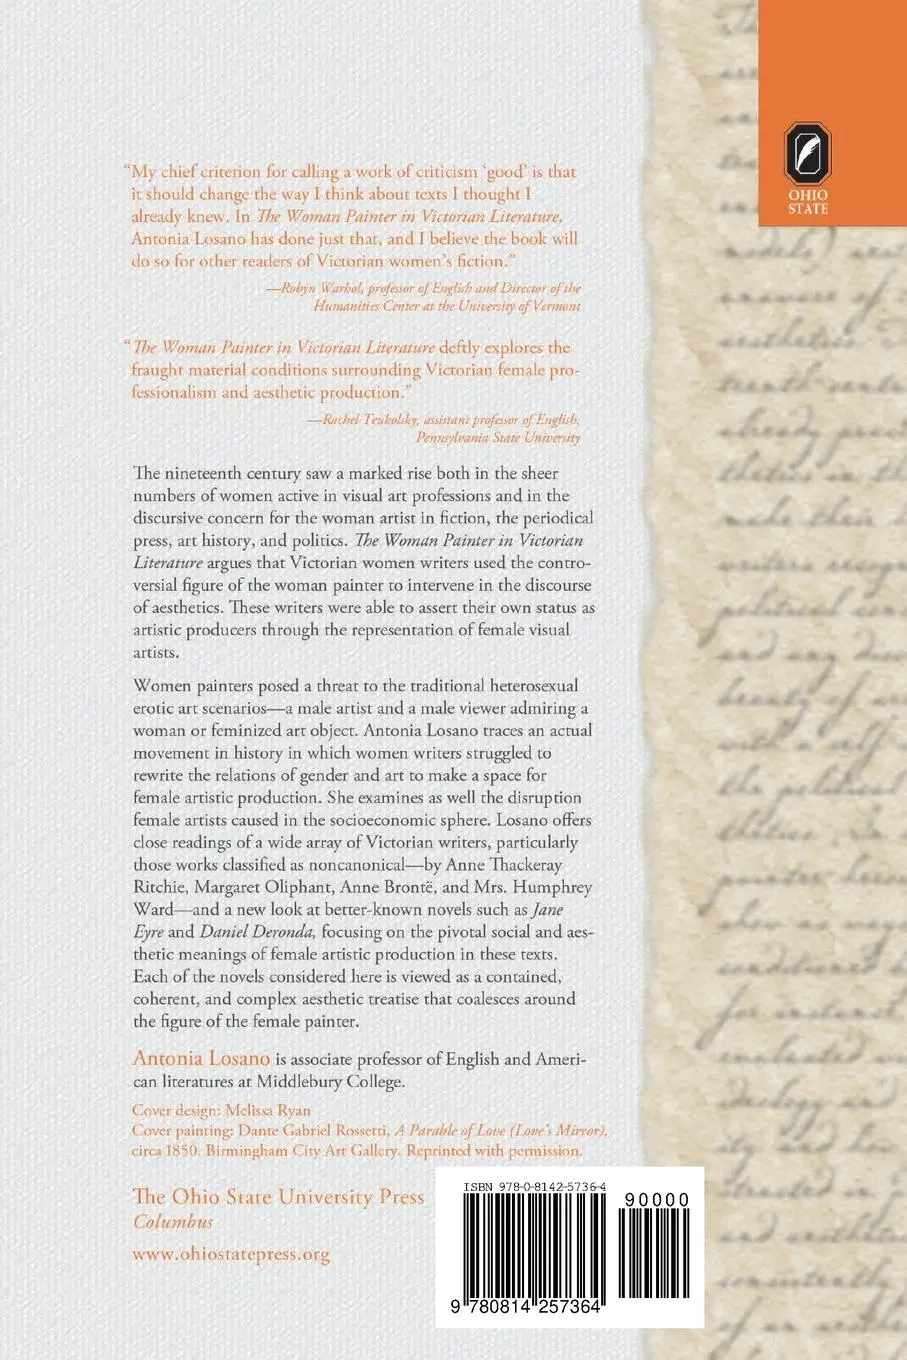 OHIO
STATE
“My chief criterion for calling a work of criticism ‘good’ is that
it should change the way I think about texts I thought I
already knew. In The Woman Painter in Victorian Literature,
Antonia Losano has done just that, and I believe the book will
do so for other readers of Victorian women’s fiction.”
—Robyn Warhol, professor of English and Director of the
Humanities Center at the University of Vermont
“The Woman Painter in Victorian Literature deftly explores the
fraught material conditions surrounding Victorian female pro-
fessionalism and aesthetic production.”
—Rachel Teukolsky, assistant professor of English,
Pennsylvania State University
The nineteenth century saw a marked rise both in the sheer
numbers of women active in visual art professions and in the
discursive concern for the woman artist in fiction, the periodical
press, art history, and politics. The Woman Painter in Victorian
Literature argues that Victorian women writers used the contro-
versial figure of the woman painter to intervene in the discourse
of aesthetics. These writers were able to assert their own status as
artistic producers through the representation of female visual
artists.
Women painters posed a threat to the traditional heterosexual
erotic art scenarios—a male artist and a male viewer admiring a
woman or feminized art object. Antonia Losano traces an actual
movement in history in which women writers struggled to
rewrite the relations of gender and art to make a space for
female artistic production. She examines as well the disruption
female artists caused in the socioeconomic sphere. Losano offers
close readings of a wide array of Victorian writers, particularly
those works classified as noncanonical—by Anne Thackeray
Ritchie, Margaret Oliphant, Anne Brontë, and Mrs. Humphrey
Ward—and a new look at better-known novels such as Jane
Eyre and Daniel Deronda, focusing on the pivotal social and aes-
thetic meanings of female artistic production in these texts.
Each of the novels considered here is viewed as a contained,
coherent, and complex aesthetic treatise that coalesces around
the figure of the female painter.
Antonia Losano is associate professor of English and Ameri-
can literatures at Middlebury College.
Cover design: Melissa Ryan
Cover painting: Dante Gabriel Rossetti, A Parable of Love (Love’s Mirror),
circa 1850. Birmingham City Art Gallery. Reprinted with permission.
The Ohio State University Press
Columbus
www.ohiostatepress.org
ISBN 978-0-8142-5736-4
90000
9 780814 257364